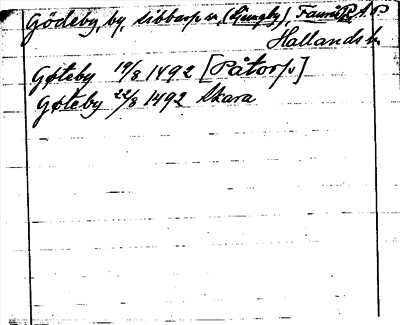 Gödeby, by, Sibbarp s., (Ljungby), Faurås h. A.S
Hallands l.
Gøteby 19/8 1492 [Påtorp]
Gøteby 22/8 1492 Skara